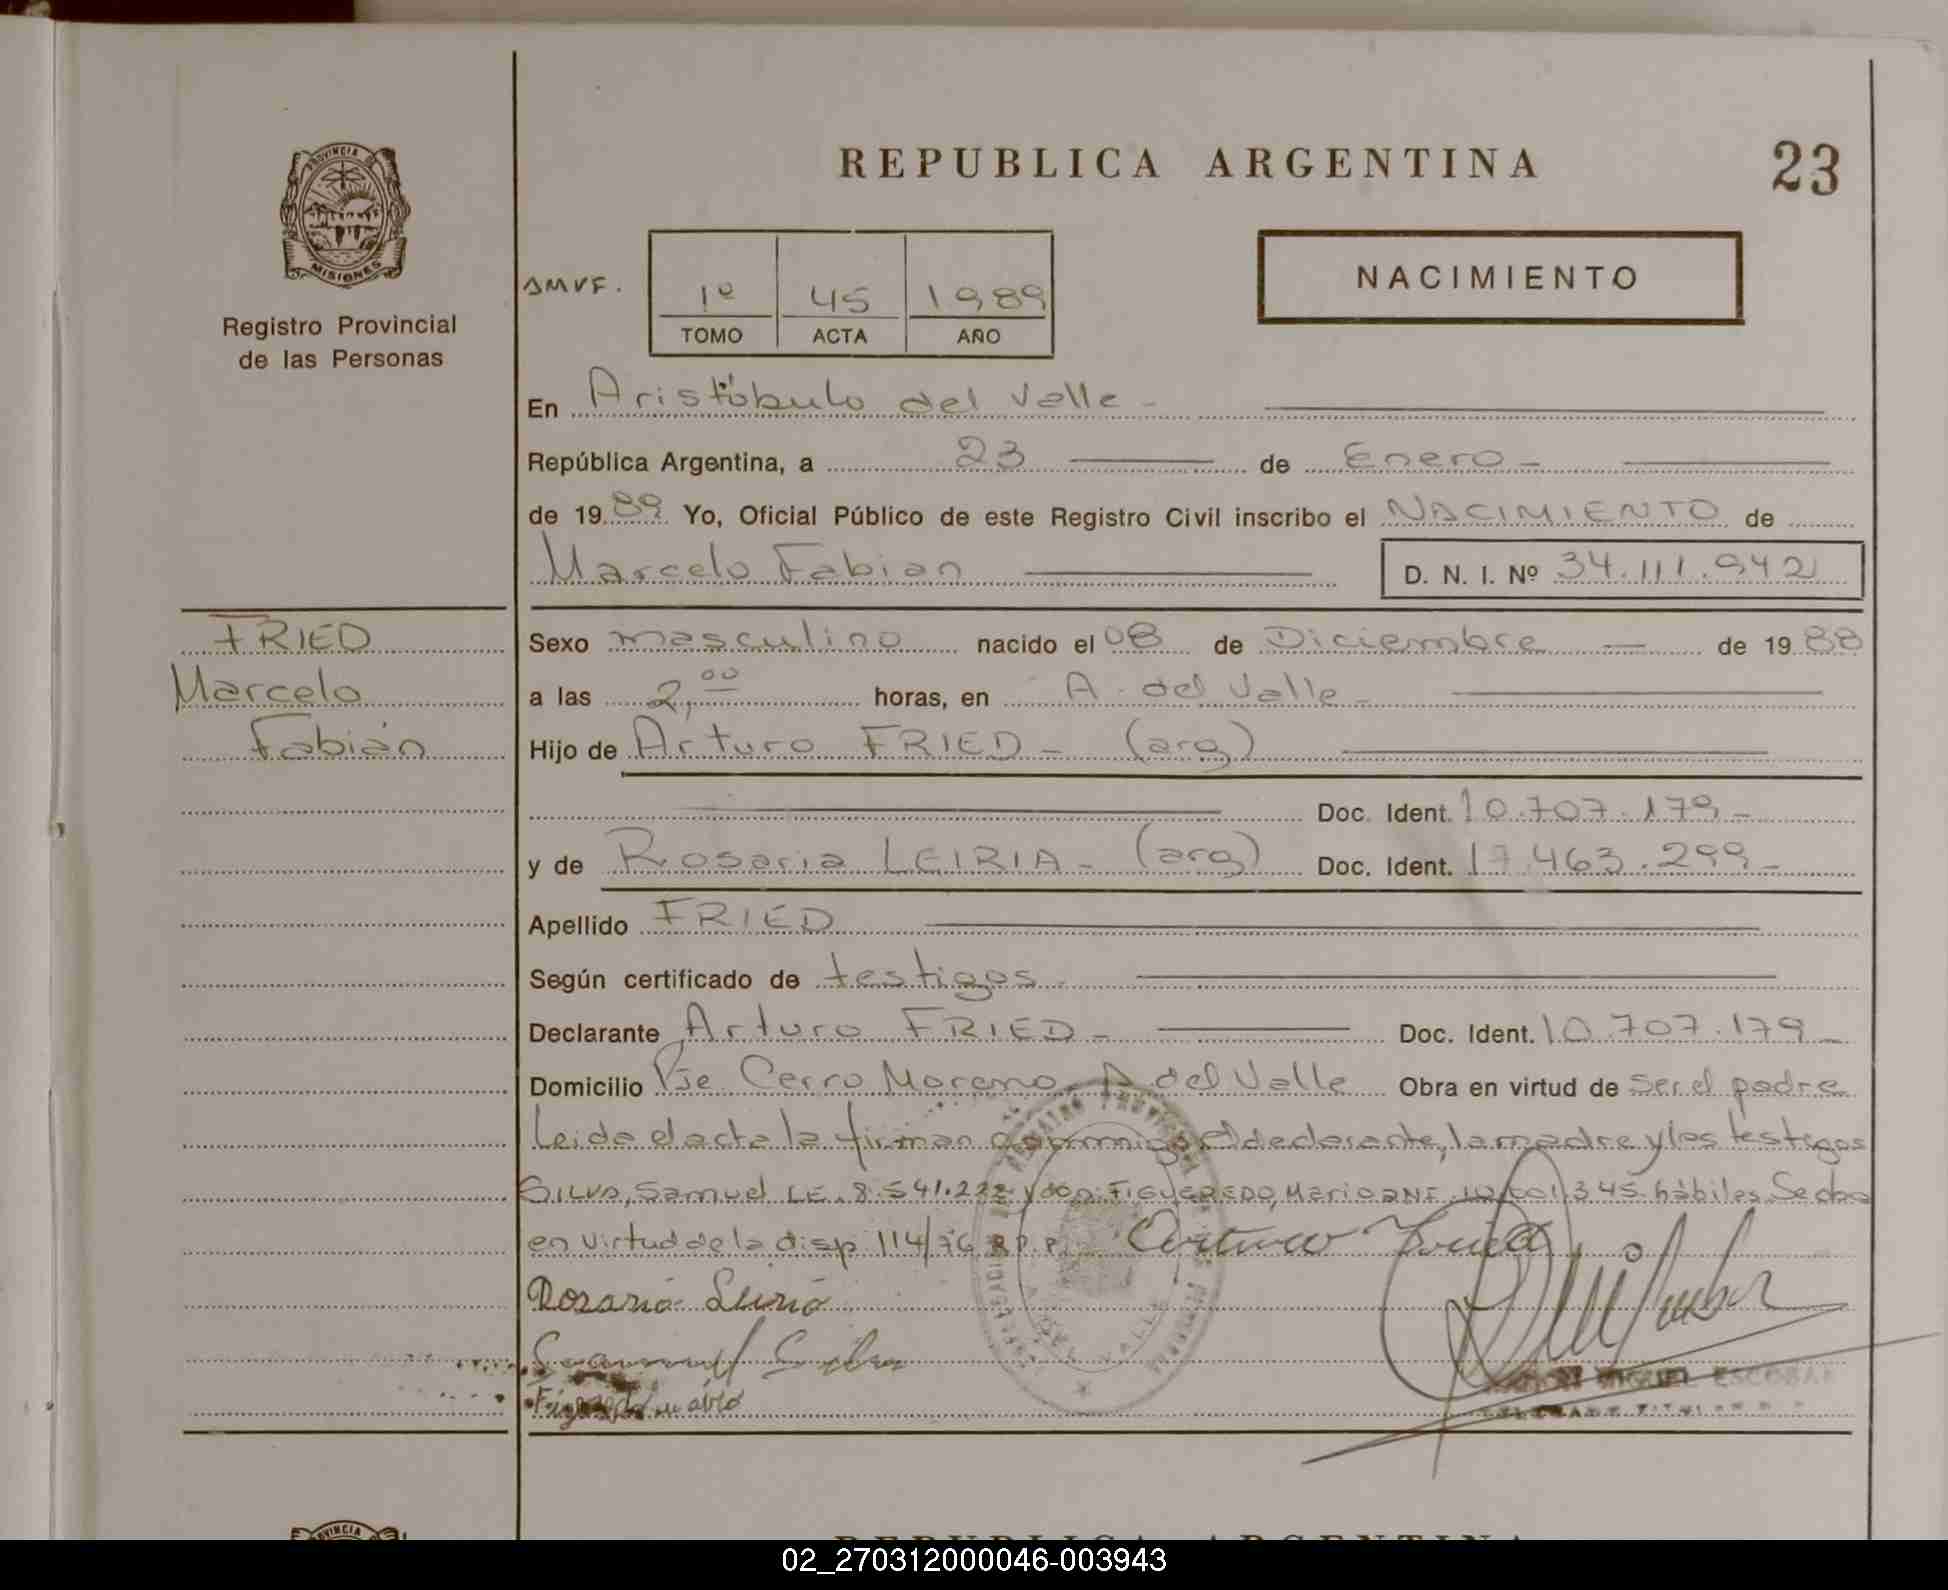 REPUBLICA ARGENTINA
23
PROVINCIA DE
MISIONES
Registro Provincial
de las Personas
NACIMIENTO
AMVF.
1º 45 1989
TOMO ACTA AÑO
En Aristóbulo del Valle -
República Argentina, a 23 de Enero -
de 1989 Yo, Oficial Público de este Registro Civil inscribo el NACIMIENTO de
Marcelo Fabian D. N. I. Nº 34.111.942
FRIED
Marcelo
Fabián
Sexo masculino nacido el 08 de Diciembre de 1988
a las 2,00 horas, en A. del Valle -
Hijo de Arturo FRIED - (arg)
Doc. Ident. 10.707.179 -
y de Rosaria LEIRIA - (arg) Doc. Ident. 17.463.299 -
Apellido FRIED
Según certificado de testigos -
Declarante Arturo FRIED - Doc. Ident. 10.707.179 -
Domicilio Pje Cerro Moreno - A del Valle Obra en virtud de ser el padre
Leida el acta la firman conmigo el declarante, la madre y los testigos
SILVA, Samuel LE. 8.541.222 y don FIGUEREDO, Mario DNI. 10.001.345 hábiles. Se labra
en virtud de la disp 114/76 R.P.P. Arturo Fried
Rosaria Leiria
Samuel Silva
Figueredo Mario
MIGUEL ESCOBAR
DEL VALLE
REPUBLICA ARGENTINA
02_270312000046-003943